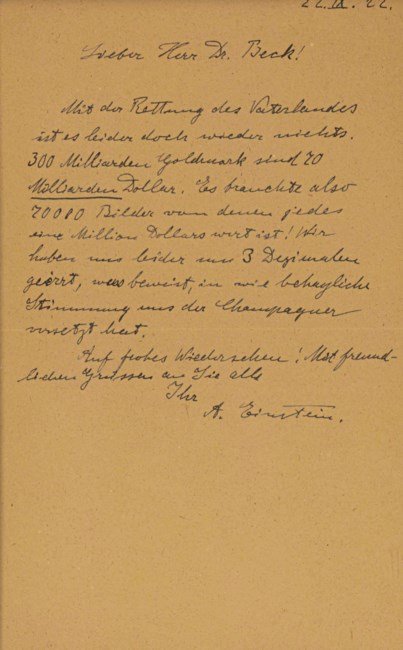 22. IX. 22.
Lieber Herr Dr. Beck!
Mit der Rettung des Vaterlandes
ist es leider doch wieder nichts.
300 Milliarden Goldmark sind 70
Milliarden Dollar. Es brauchte also
70000 Bilder von denen jedes
eine Million Dollars wert ist! Wir
haben uns leider um 3 Dezimalen
geirrt, was beweist, in wie behagliche
Stimmung uns der Champagner
versetzt hat.
Auf frohes Wiedersehen! Mit freund-
lichen Grüssen an Sie alle
Ihr
A. Einstein.